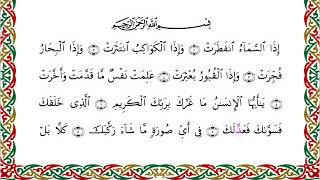 بِسْمِ ٱللَّهِ ٱلرَّحْمَـٰنِ ٱلرَّحِيمِ
إِذَا ٱلسَّمَآءُ ٱنفَطَرَتْ ۝ وَإِذَا ٱلْكَوَاكِبُ ٱنتَثَرَتْ ۝ وَإِذَا ٱلْبِحَارُ
فُجِّرَتْ ۝ وَإِذَا ٱلْقُبُورُ بُعْثِرَتْ ۝ عَلِمَتْ نَفْسٌ مَّا قَدَّمَتْ وَأَخَّرَتْ
۝ يَـٰٓأَيُّهَا ٱلْإِنسَـٰنُ مَا غَرَّكَ بِرَبِّكَ ٱلْكَرِيمِ ۝ ٱلَّذِى خَلَقَكَ
فَسَوَّىٰكَ فَعَدَلَكَ ۝ فِىٓ أَىِّ صُورَةٍ مَّا شَآءَ رَكَّبَكَ ۝ كَلَّا بَلْ